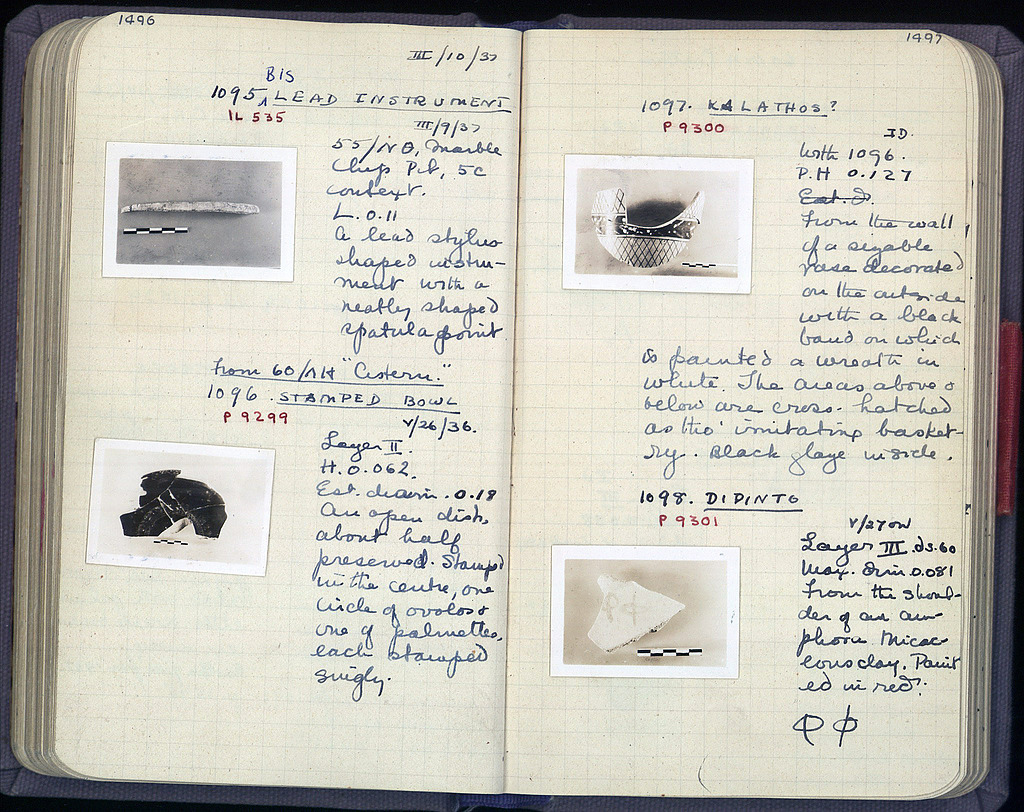 1496
III/10/37
BIS
1095 ∧ LEAD INSTRUMENT
IL 535
III/9/37
55/ΝΘ, Marble
Chip Pit, 5C
context.
L. 0.11
A lead stylus
shaped instru-
ment with a
neatly shaped
spatula point
from 60/ΛΗ "Cistern."
1096. STAMPED BOWL
P 9299
V/26/36.
Layer II.
H. 0.062.
Est. diam. 0.18
An open dish,
about half
preserved. Stamped
in the centre, one
circle of ovolos &
one of palmettes,
each stamped
singly.
1497
1097. KALATHOS?
P 9300
ID.
With 1096.
P.H 0.127
Est. d.
From the wall
of a sizable
vase decorated
on the outside
with a black
band on which
is painted a wreath in
white. The areas above &
below are cross-hatched
as tho' imitating basket-
ry. Black glaze inside.
1098. DIPINTO
P 9301
V/27
Layer III. 60
Max. dim 0.081
From the shoul-
der of an am-
phora. Micac-
eous clay. Paint
ed in red: